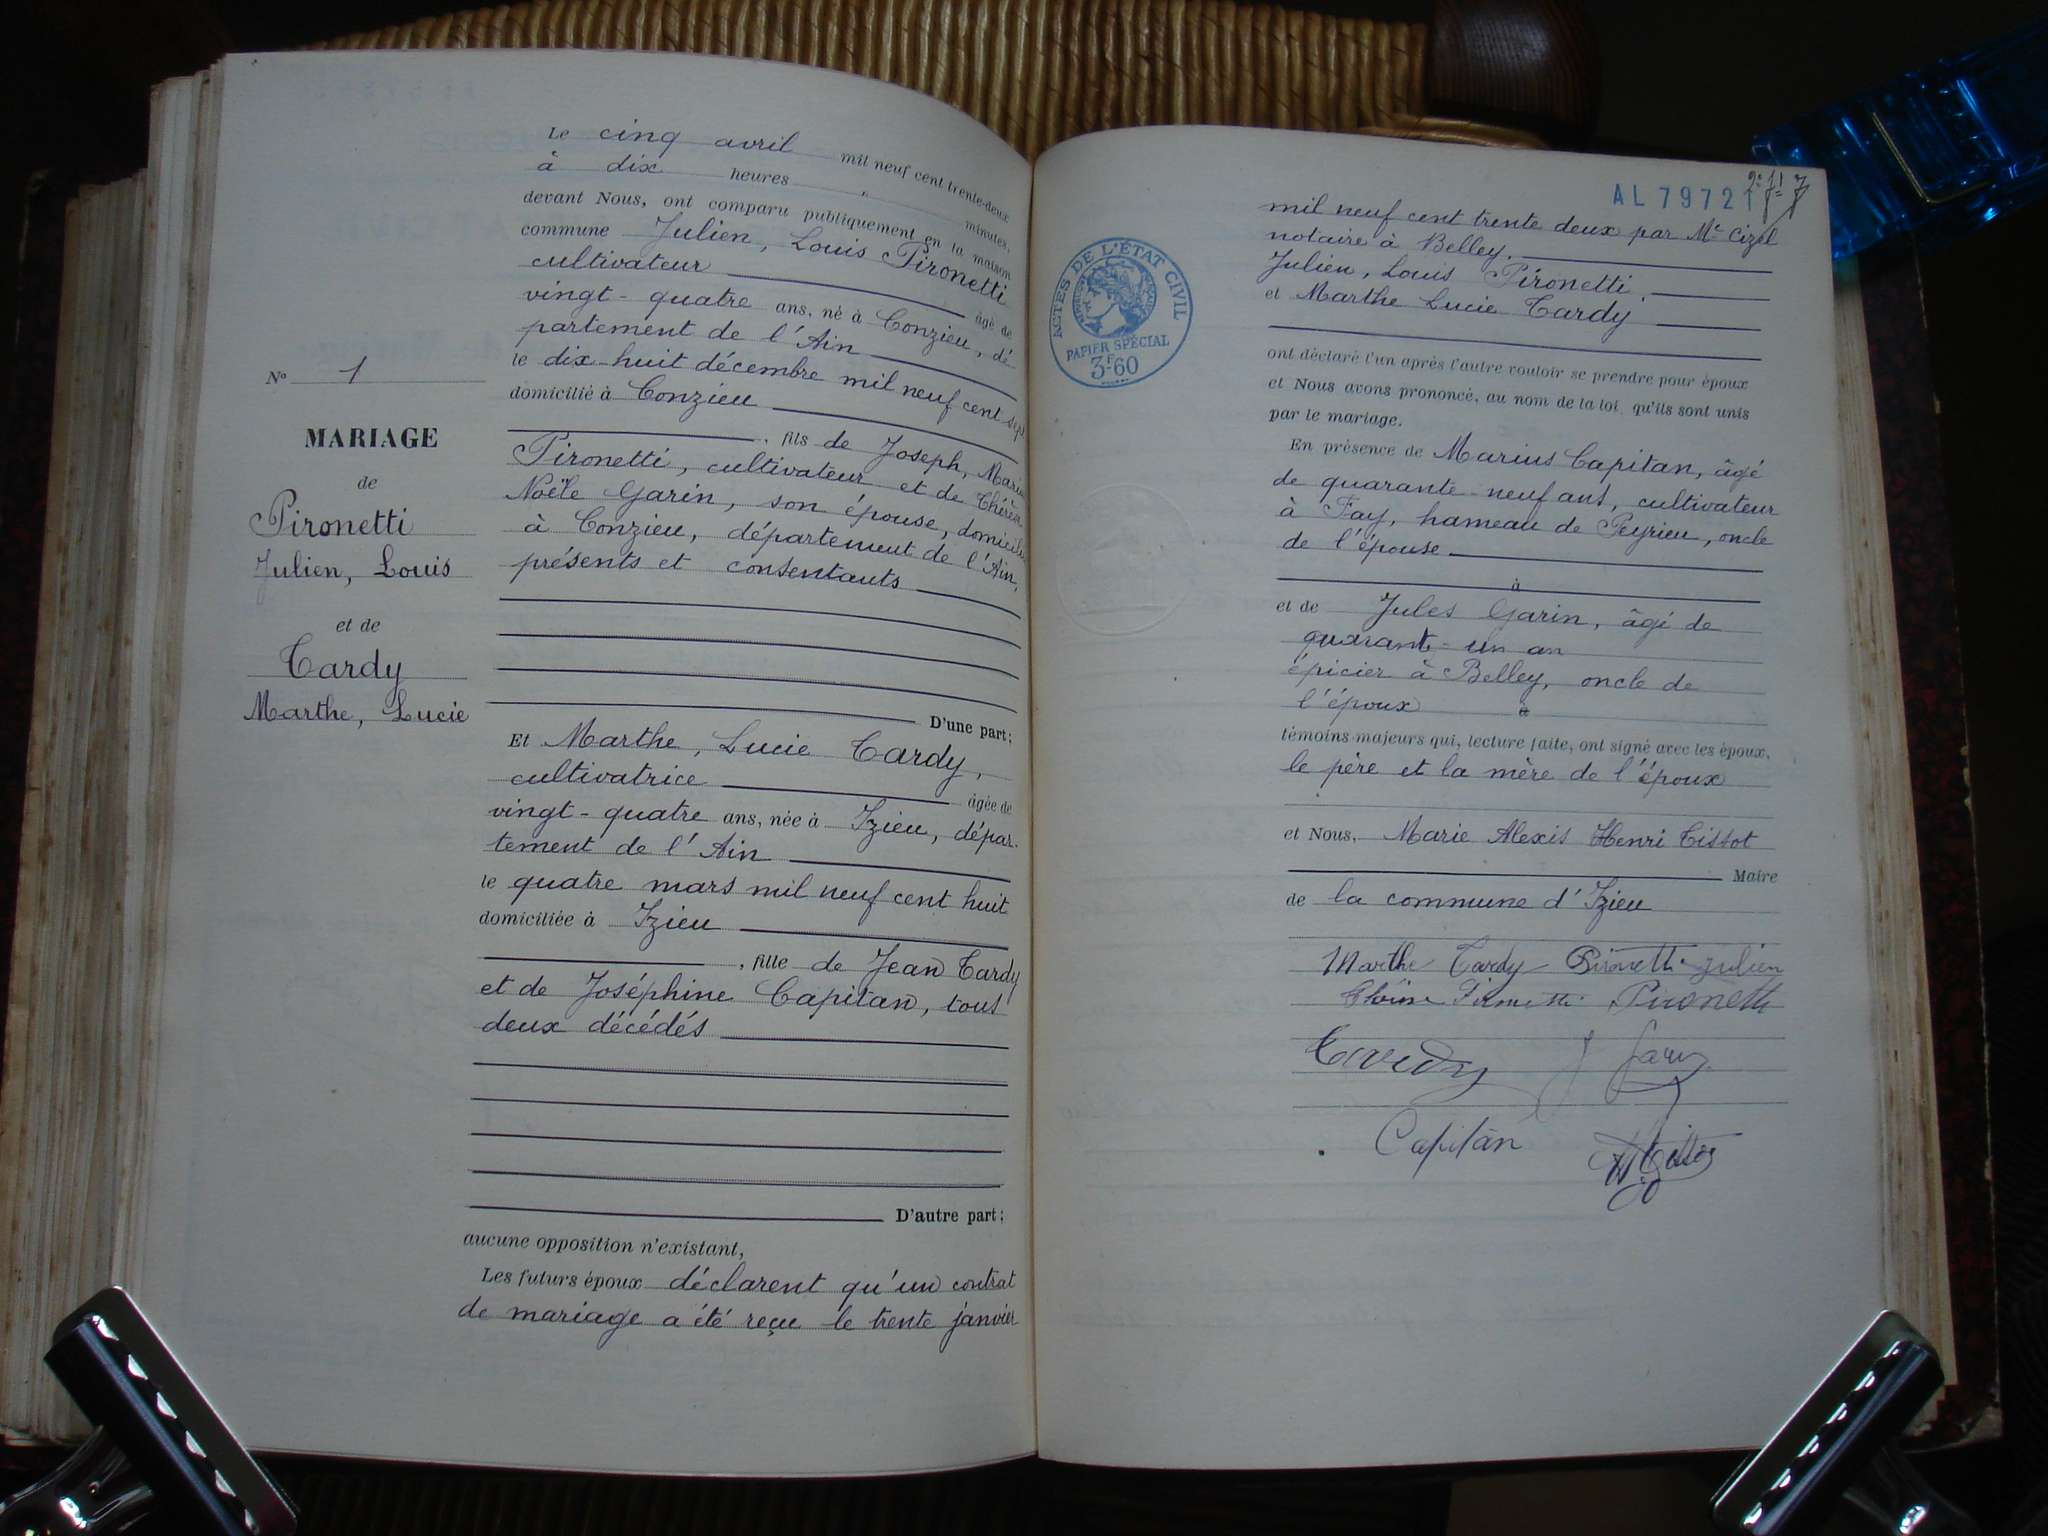 N° 1
MARIAGE
de
Pironetti
Julien, Louis
et de
Tardy
Marthe, Lucie
Le cinq avril mil neuf cent trente-deux
à dix heures " minutes,
devant Nous, ont comparu publiquement en la maison
commune Julien, Louis Pironetti
cultivateur âgé de
vingt-quatre ans, né à Conzieu, dé-
partement de l'Ain
le dix-huit décembre mil neuf cent sept
domicilié à Conzieu
, fils de Joseph, Marie
Pironetti, cultivateur et de Thérèse
Noële Garin, son épouse, domiciliés
à Conzieu, département de l'Ain,
présents et consentants
D'une part;
Et Marthe, Lucie Tardy,
cultivatrice âgée de
vingt-quatre ans, née à Izieu, dépar-
tement de l'Ain
le quatre mars mil neuf cent huit
domiciliée à Izieu
, fille de Jean Tardy
et de Joséphine Capitan, tous
deux décédés
D'autre part;
aucune opposition n'existant,
Les futurs époux déclarent qu'un contrat
de mariage a été reçu le trente janvier
AL 79721
mil neuf cent trente deux par Me Cizel
notaire à Belley.
Julien, Louis Pironetti.
et Marthe Lucie Tardy
ACTES DE L'ÉTAT CIVIL
PAPIER SPÉCIAL
3F60
ont déclaré l'un après l'autre vouloir se prendre pour époux
et Nous avons prononcé, au nom de la loi qu'ils sont unis
par le mariage.
En présence de Marius Capitan, âgé
de quarante-neuf ans, cultivateur
à Fay, hameau de Peyrieu, oncle
de l'épouse
à
et de Jules Garin, âgé de
quarante-un an
épicier à Belley, oncle de
l'époux à
témoins majeurs qui, lecture faite, ont signé avec les époux,
le père et la mère de l'époux
et Nous, Marie Alexis Henri Tissot
Maire
de la commune d'Izieu
Marthe Tardy Pironetti Julien
Pironetti
Tardy J Garin
Capitan
H Tissot